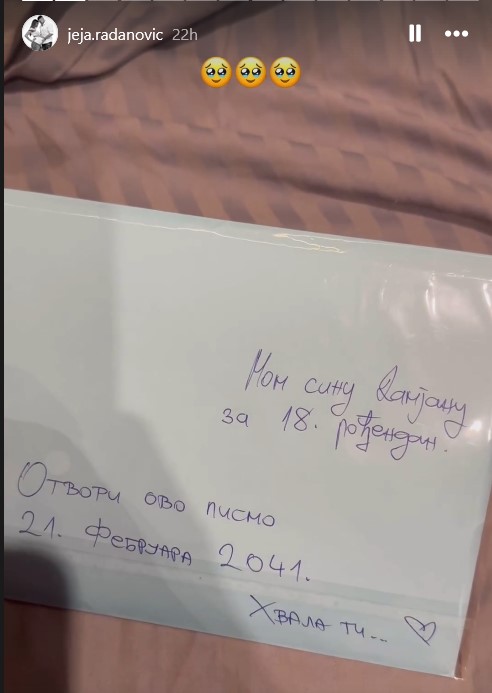 jeja.radanovic 22h
🥹🥹🥹
Мом сину Дамјану
за 18. рођендан.
Отвори ово писмо
21. фебруара 2041.
Хвала ти... ♡